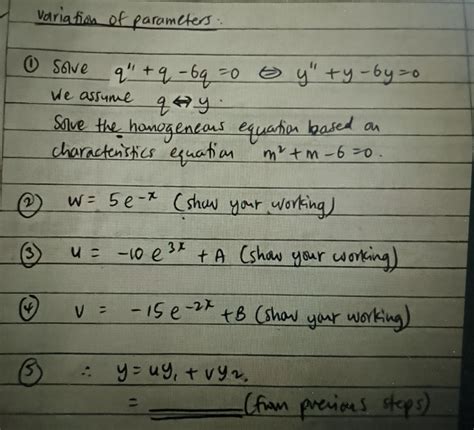 variation of parameters:
① Solve q" + q - 6q = 0 ⇔ y" + y - 6y = 0
We assume q ↔ y.
Solve the homogeneous equation based on
characteristics equation m² + m - 6 = 0.
② W = 5e^{-x} (show your working)
③ u = -10e^{3x} + A (show your working)
④ v = -15e^{-2x} + B (show your working)
⑤ ∴ y = uy₁ + vy₂.
= ______ (from previous steps)